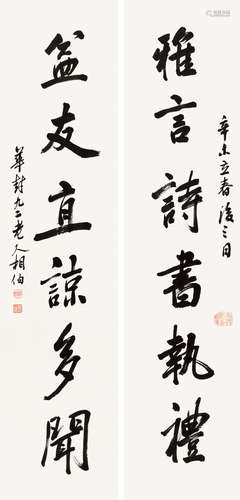 辛未立春後三日
雅言詩書執禮
益友直諒多聞
華封九二老人相伯